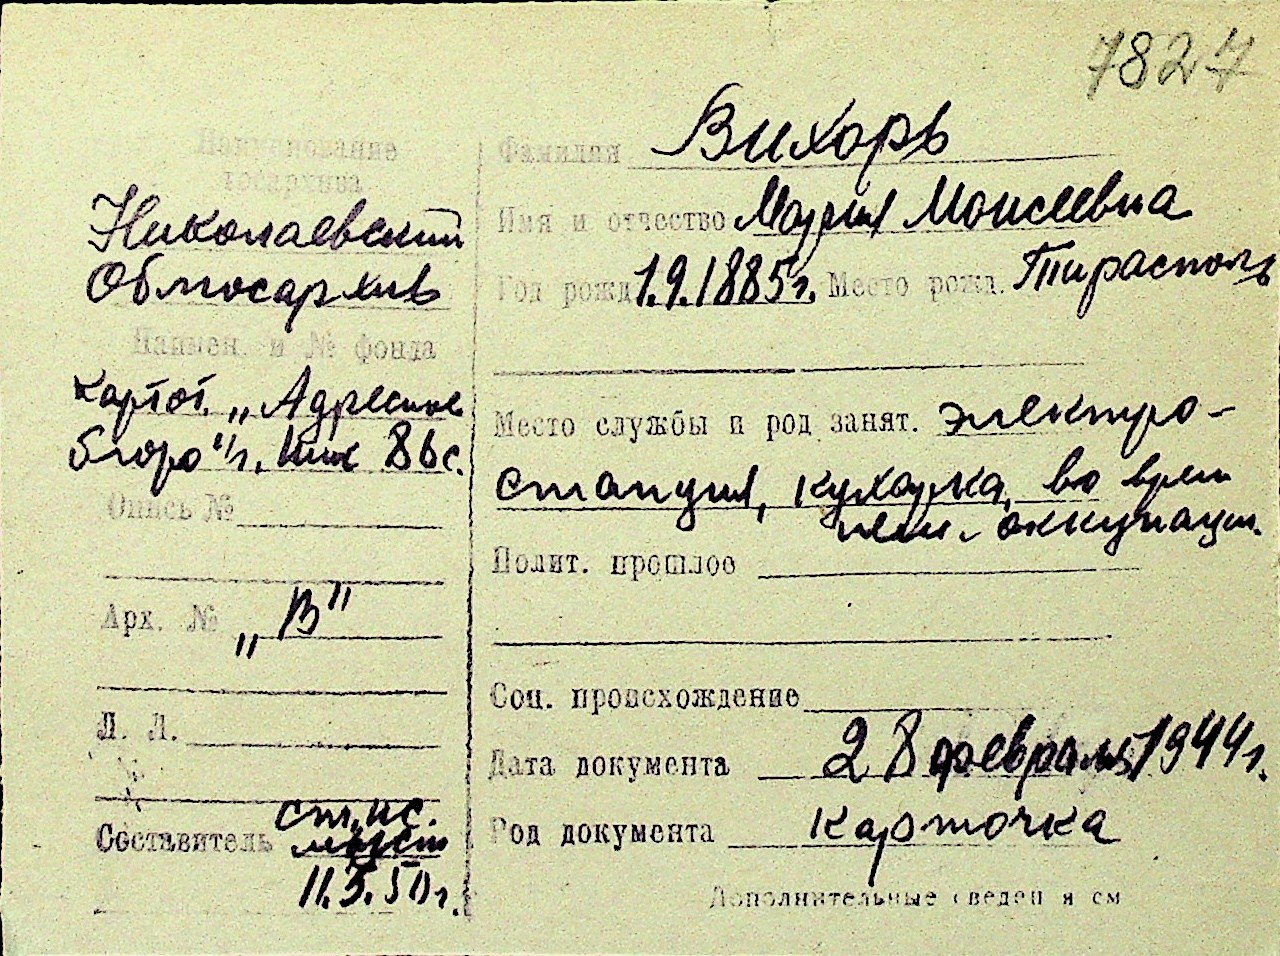 7827
Наименование
госархива
Николаевский
Облгосархив
Наимен. и № фонда
картот. "Адресное
бюро" г. Ник
Опись №
Арх. № "В"
Л. Л.
Составитель ст. ис.
11.5.50 г.
Фамилия Вихорь
Имя и отчество Мария Моисеевна
Год рожд. 1.9.1885 г. Место рожд. Тирасполь
Место службы и род занят. электро-
станция, кухарка, во врем
нем. оккупации.
Полит. прошлое
Соц. происхождение
Дата документа 28 февраля 1944 г.
Род документа карточка
Дополнительные сведения см